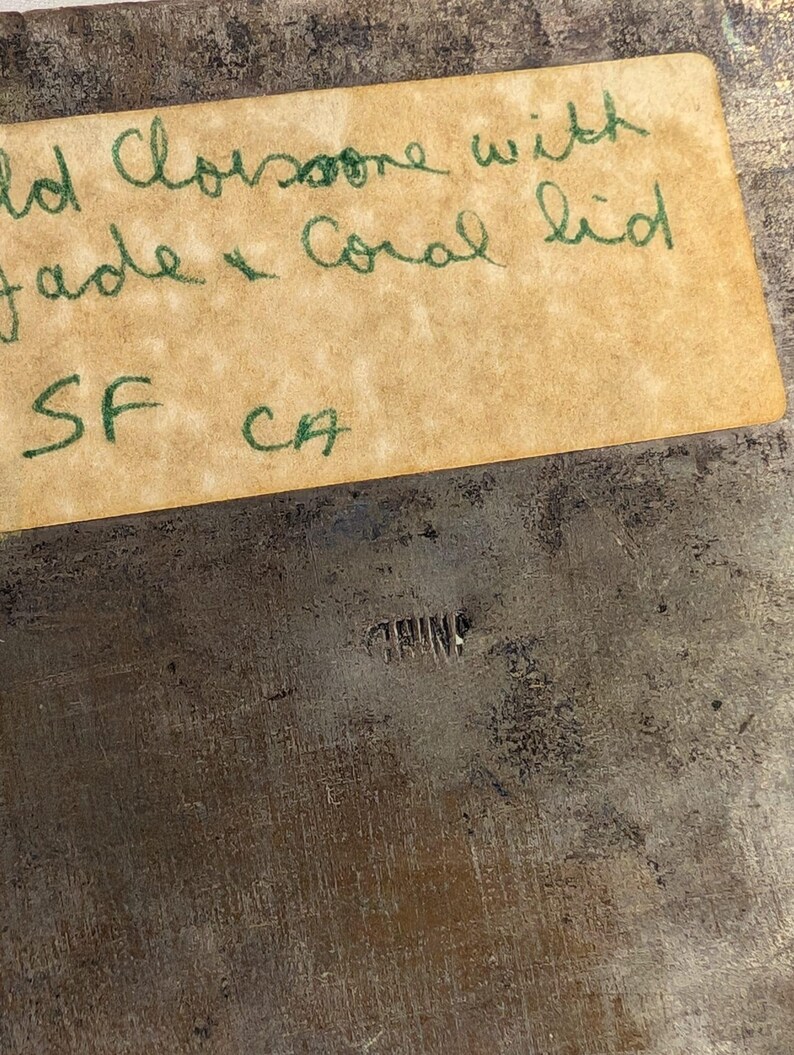 ld Cloisoone with
Jade & Coral lid
SF CA
CHINA